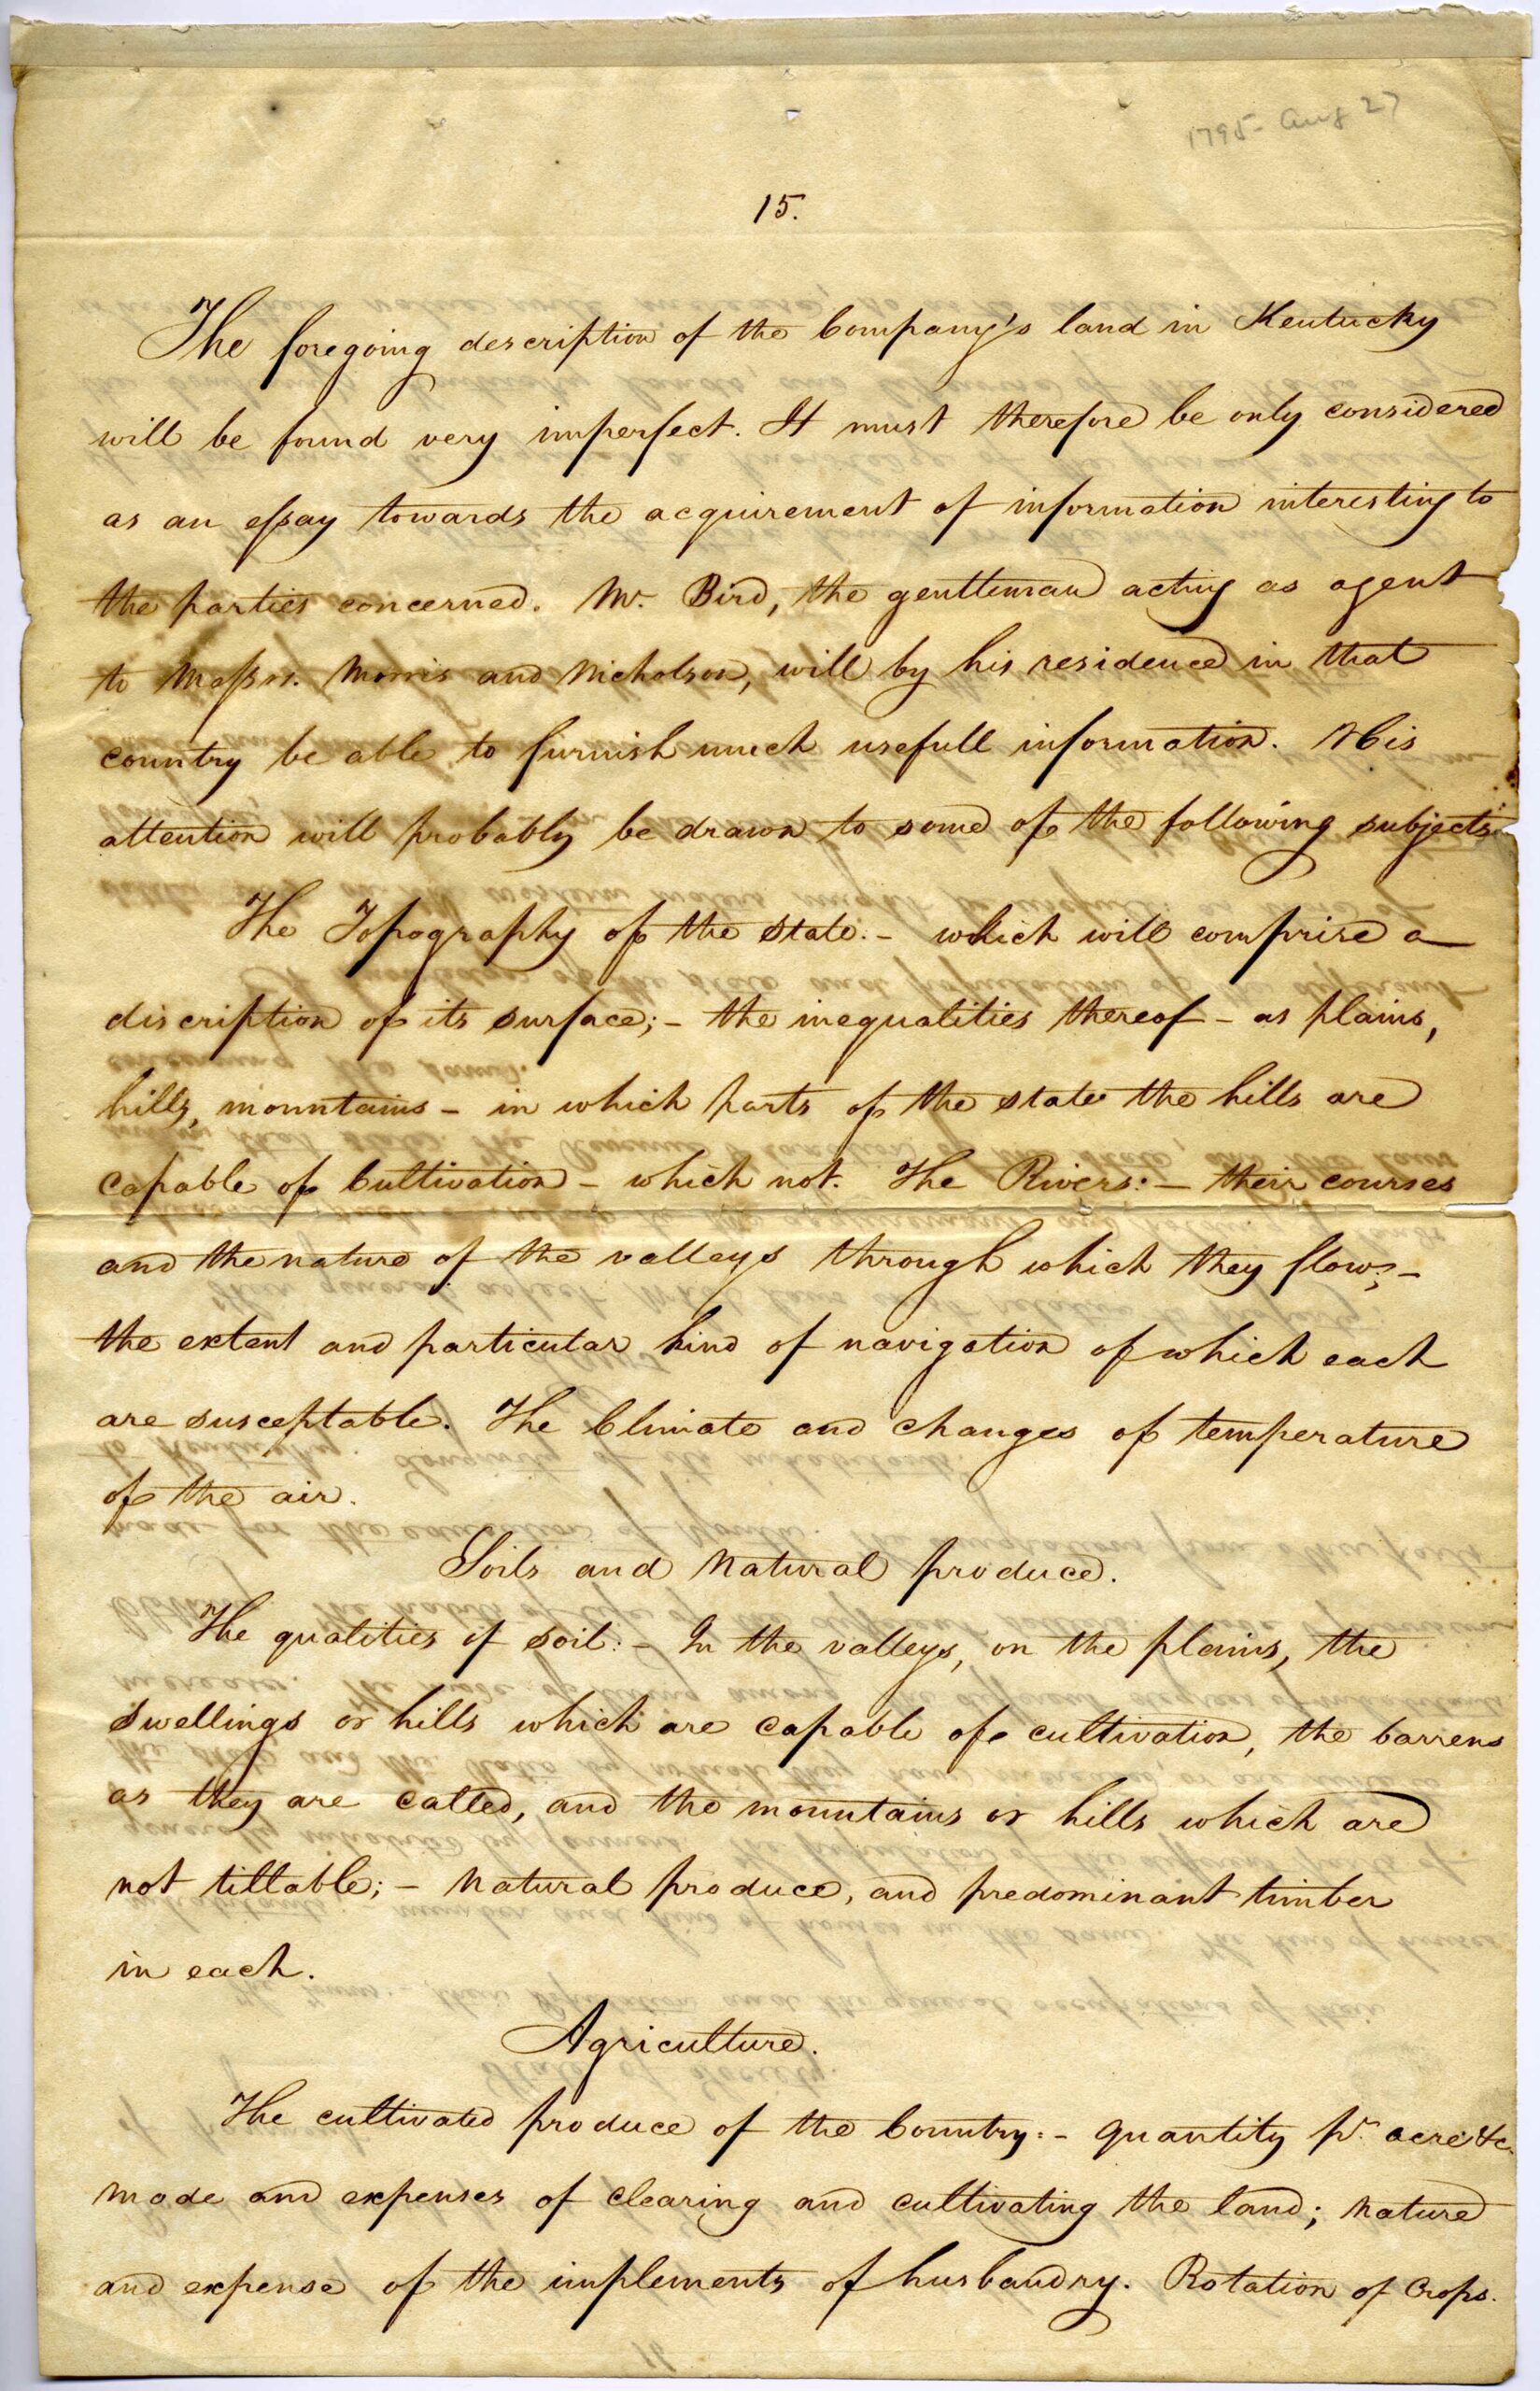 1795- Aug 27
15.
The foregoing description of the Company's land in Kentucky
will be found very imperfect. It must therefore be only considered
as an eſsay towards the acquirement of information interesting to
the parties concerned. Mr. Bird, the gentleman acting as agent
to Meſsrs. Morris and Nicholson, will by his residence in that
country be able to furnish much usefull information. His
attention will probably be drawn to some of the following subjects
The Topography of the State:- which will comprise a
discription of its surface;- the inequalities thereof - as plains,
hills, mountains - in which parts of the state the hills are
capable of Cultivation - which not. The Rivers:- their courses
and the nature of the valleys through which they flow;-
the extent and particular kind of navigation of which each
are susceptable. The Climate and changes of temperature
of the air.
Soils and Natural produce.
The qualities of soil:- In the valleys, on the plains, the
swellings or hills which are capable of cultivation, the barrens
as they are called, and the mountains or hills which are
not tillable;- Natural produce, and predominant timber
in each.
Agriculture.
The cultivated produce of the Country:- quantity pr. acre &c.
Mode and expenses of clearing and cultivating the land; nature
and expense of the implements of husbandry. Rotation of Crops.